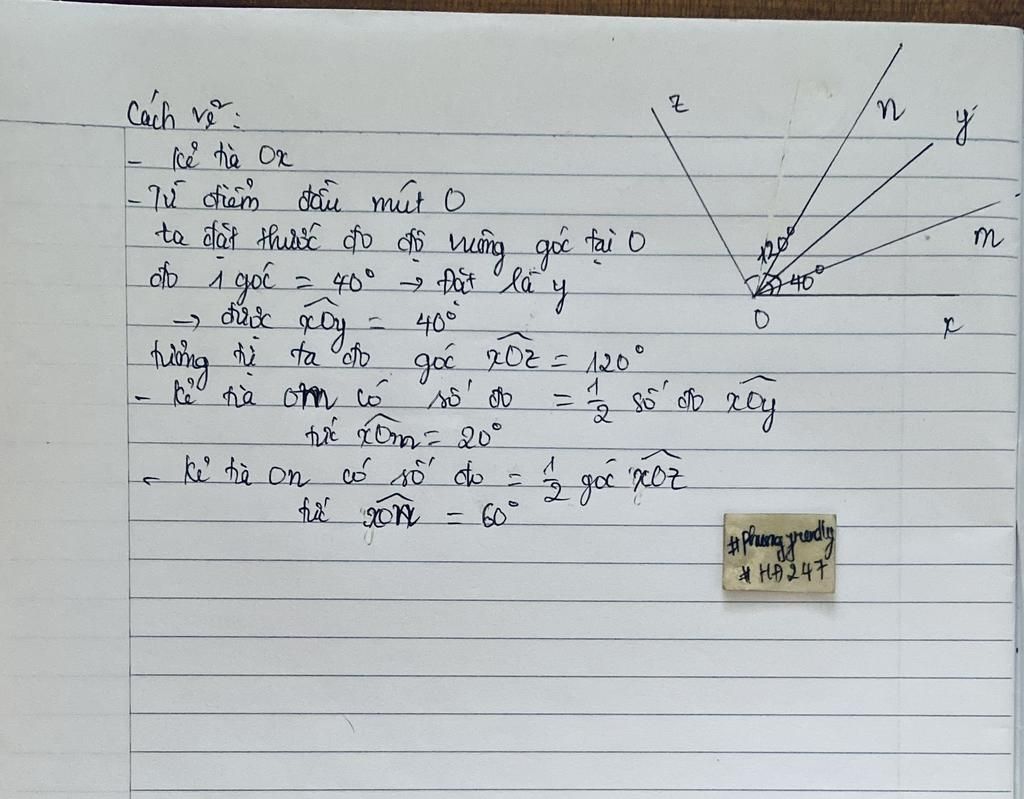 Cách vẽ:
- kẻ tia Ox
- Từ điểm đầu mút O
ta đặt thước đo độ vuông góc tại O
đo 1 góc = 40° → Đặt là y
→ được xOy = 40°
tương tự ta đo góc xOz = 120°
- kẻ tia Om có số đo = 1/2 số đo xOy
tức xOm = 20°
- kẻ tia On có số đo = 1/2 góc xOz
tức xOn = 60°
z
n
y
m
120°
40°
O
x
# HD247